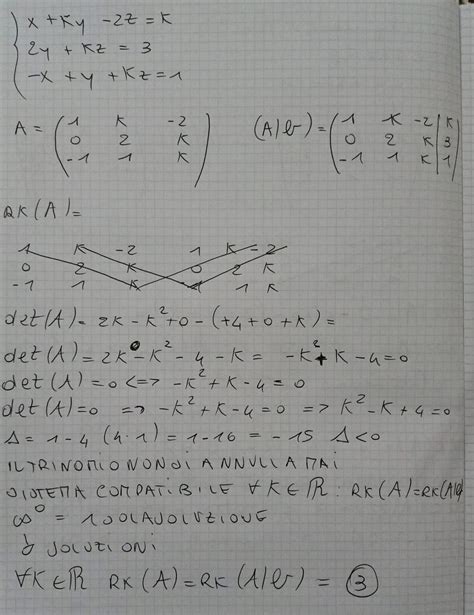 x + Ky - 2z = K
2y + Kz = 3
-x + y + Kz = 1
A = ( 1 K -2 (A|b) = ( 1 K -2 | K
0 2 K ) 0 2 K | 3
-1 1 K -1 1 K | 1 )
RK(A) =
1 K -2 1 K -2
0 2 K 0 2 K
-1 1 K -1 1 K
det(A) = 2K - K² + 0 - (+4 + 0 + K) =
det(A) = 2K - K² - 4 - K = -K² + K - 4 = 0
det(A) = 0 <=> -K² + K - 4 = 0
det(A) = 0 => -K² + K - 4 = 0 => K² - K + 4 = 0
Δ = 1 - 4 (4·1) = 1 - 16 = -15 Δ < 0
IL TRINOMIO NON SI ANNULLA MAI
SISTEMA COMPATIBILE ∀K∈ℝ : RK(A) = RK(A|b)
∞⁰ = 1 SOLA SOLUZIONE
↳ SOLUZIONI
∀K∈ℝ RK(A) = RK(A|b) = 3